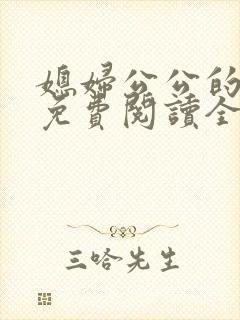 媳婦公公的
免費閱讀全
三哈先生